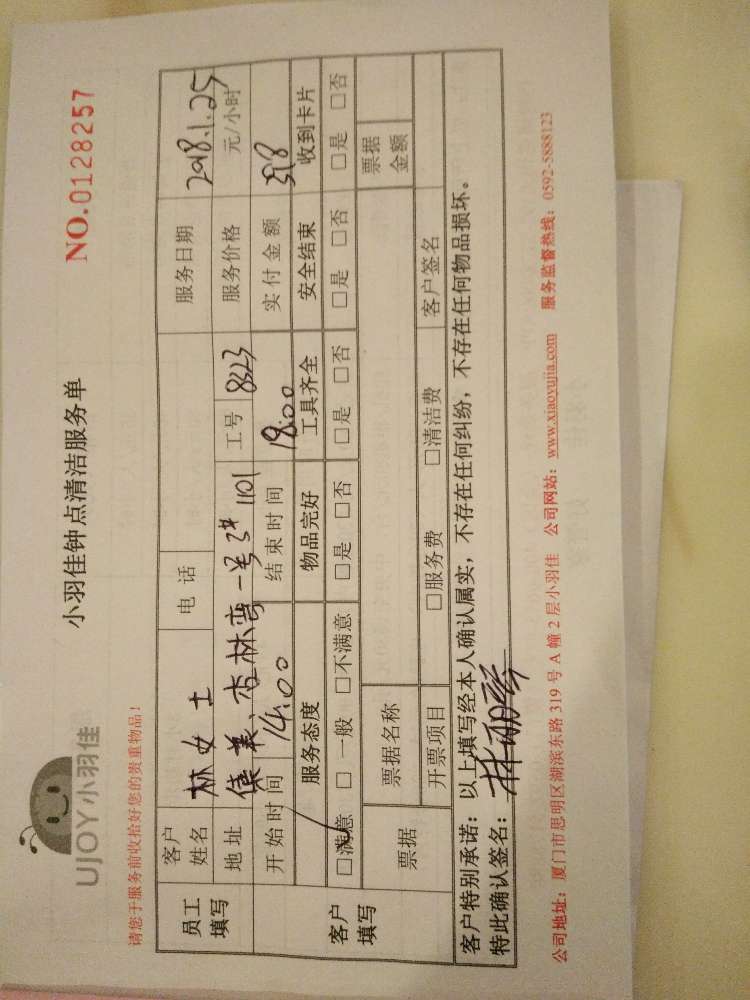 UJOY小羽佳
小羽佳钟点清洁服务单
NO.0128257
请您于服务前收拾好您的贵重物品！
员工填写 客户姓名 林女士 电话 服务日期 2018.1.25
地址 集美、杏林湾一号 1101 工号 8323 服务价格 元/小时
客户填写 开始时间 14:00 结束时间 18:00 实付金额
服务态度 物品完好 工具齐全 安全结束 收到卡片
□满意 □一般 □不满意 □是 □否 □是 □否 □是 □否 □是 □否
票据 票据名称 票据金额
开票项目 □服务费 □清洁费 客户签名
客户特别承诺：以上填写经本人确认属实，不存在任何纠纷，不存在任何物品损坏。
特此确认签名：林
公司地址：厦门市思明区湖滨东路319号A幢2层小羽佳 公司网站：www.xiaoyujia.com 服务监督热线：0592-5888123